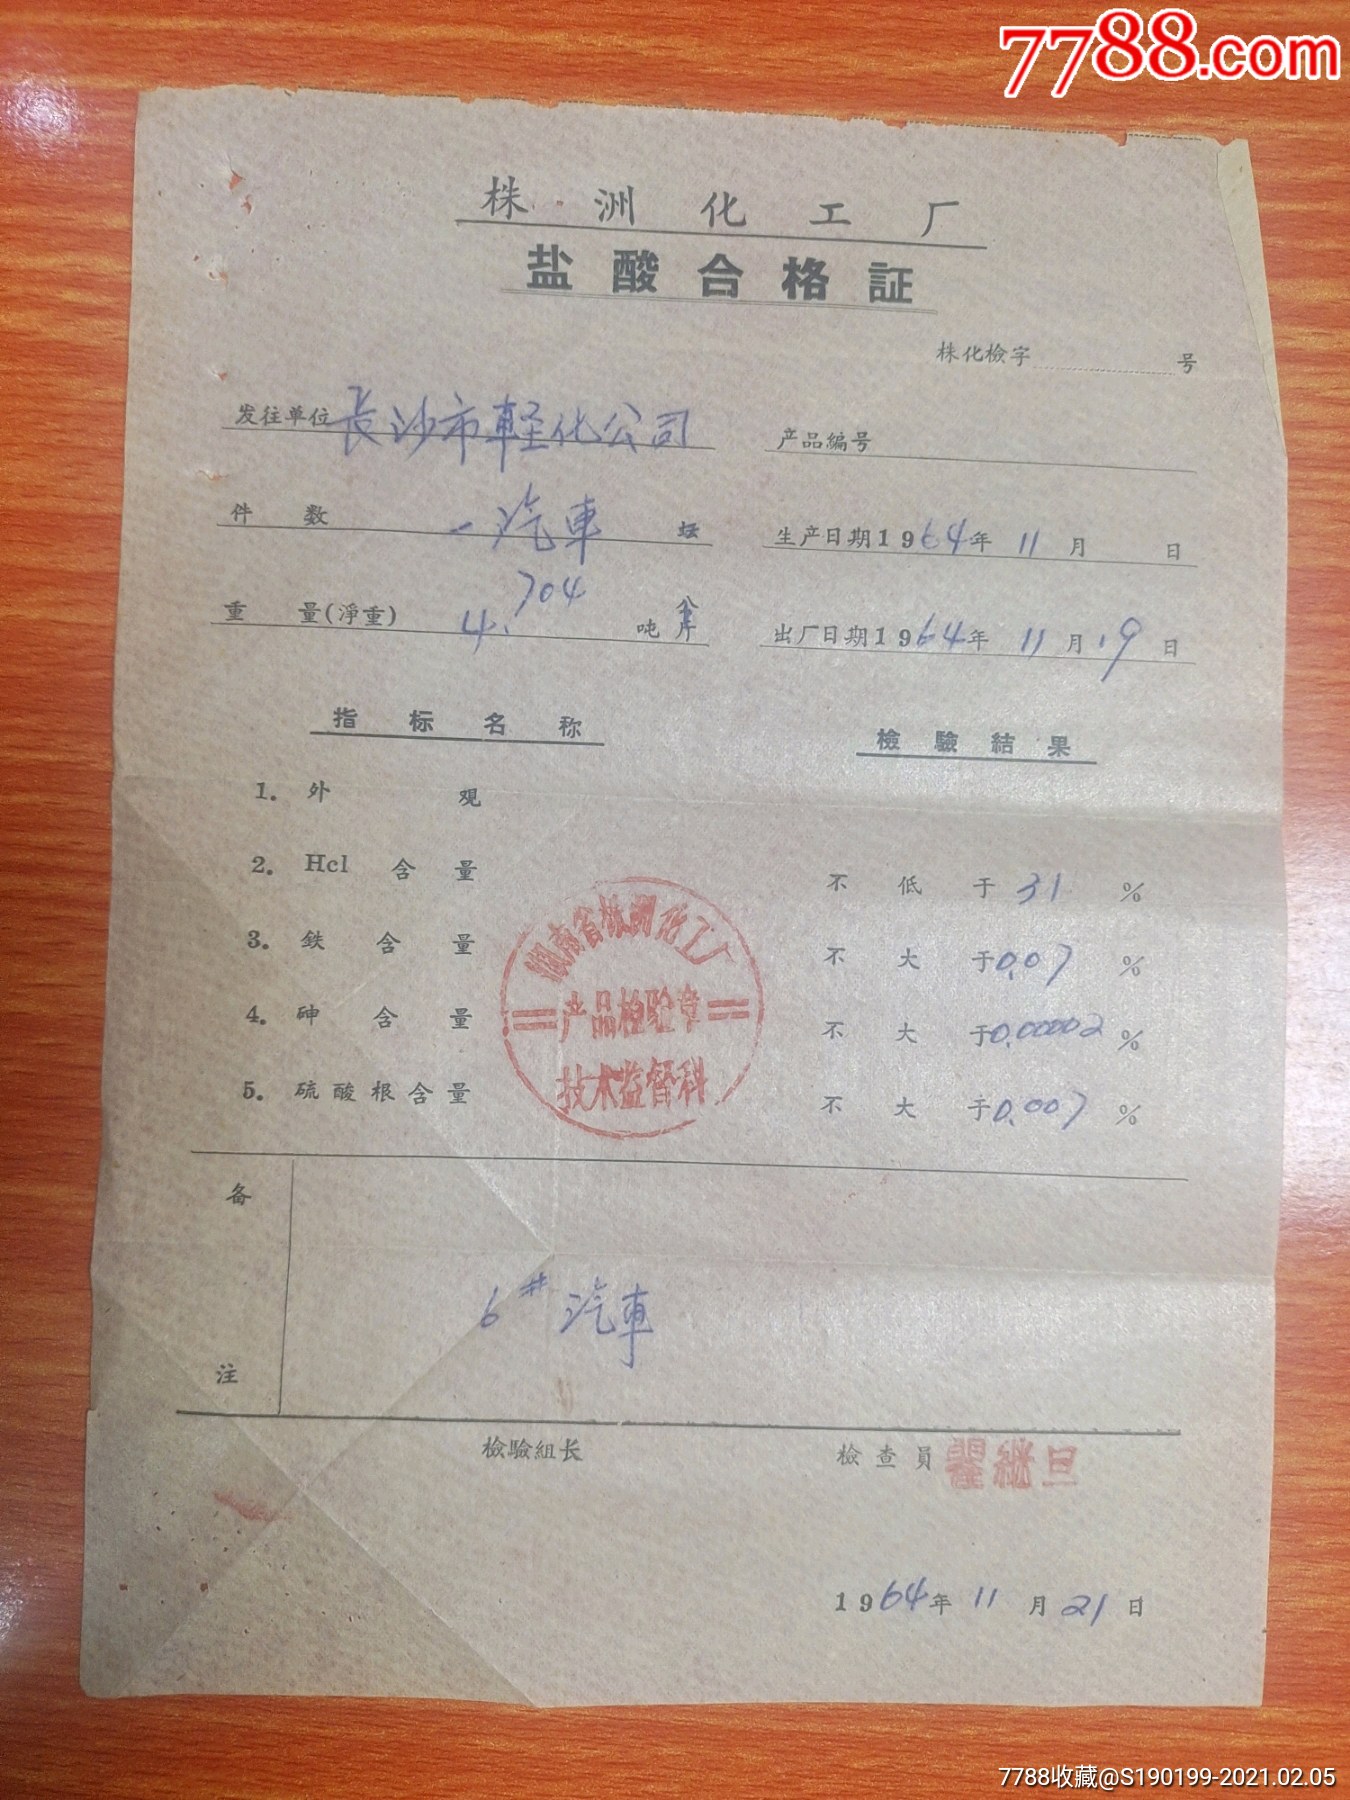 7788.com
株洲化工厂
盐酸合格証
株化檢字 号
发往单位 长沙市軽化公司 产品編号
件数 一汽車 坛 生产日期1964年11月 日
重量(淨重) 4.704 吨 出厂日期1964年11月19日
指标名称 檢驗結果
1. 外观
2. Hcl 含量 不低于31%
3. 鉄含量 不大于0.07%
4. 砷含量 不大于0.00002%
5. 硫酸根含量 不大于0.007%
湖南省株洲化工厂
产品检验章
技术监督科
备注
6# 汽車
檢驗組长 檢查員 翟継旦
1964年11月21日
7788收藏@S190199-2021.02.05